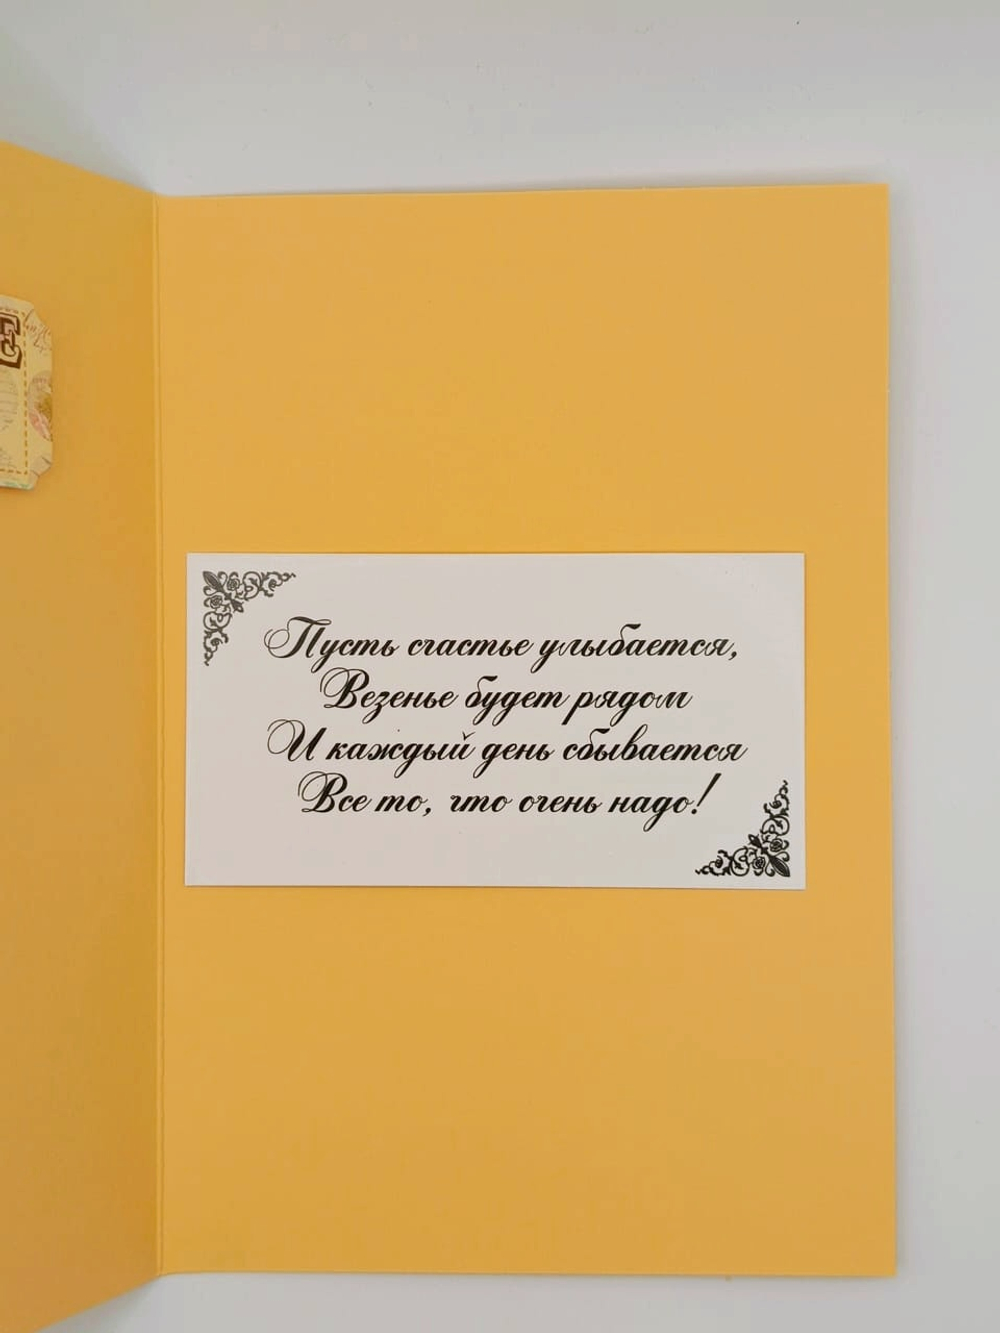 Е
Пусть счастье улыбается,
Везенье будет рядом
И каждый день сбывается
Все то, что очень надо!